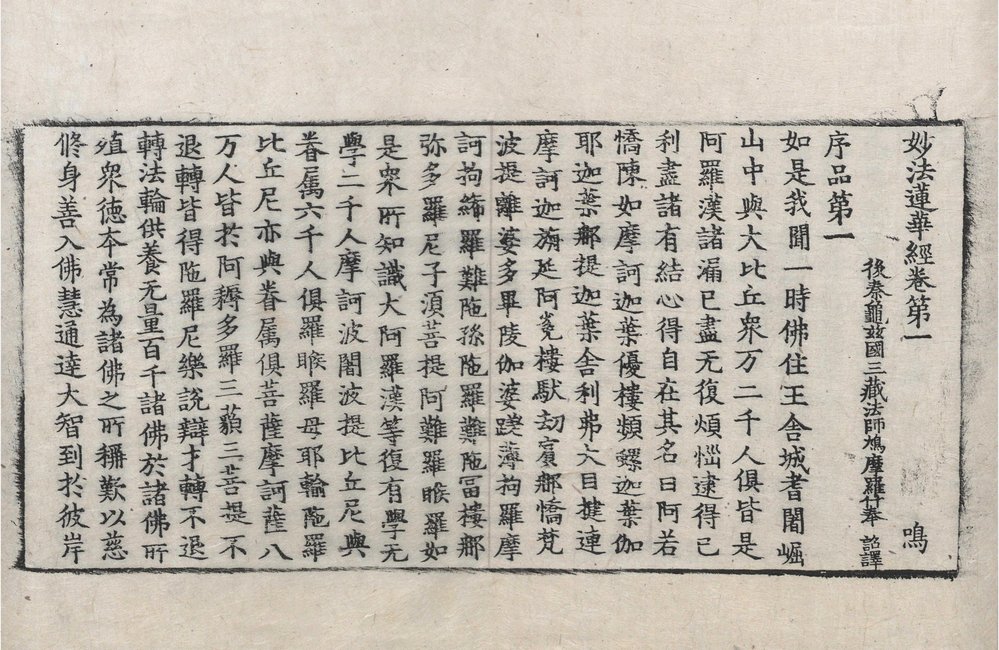 妙法蓮華經卷第一 鳴
後秦龜兹國三藏法師鳩摩羅什奉 詔譯
序品第一
如是我聞一時佛住王舍城耆闍崛
山中與大比丘衆万二千人俱皆是
阿羅漢諸漏已盡无復煩惱逮得已
利盡諸有結心得自在其名曰阿若
憍陳如摩訶迦葉優樓頻螺迦葉伽
耶迦葉那提迦葉舍利弗大目揵連
摩訶迦旃延阿㝹樓馱劫賓那憍梵
波提離婆多畢陵伽婆蹉薄拘羅摩
訶拘絺羅難陁孫陁羅難陁冨樓那
弥多羅尼子湏菩提阿難羅睺羅如
是衆所知識大阿羅漢等復有學无
學二千人摩訶波闍波提比丘尼與
眷属六千人俱羅睺羅母耶輸陁羅
比丘尼亦與眷属俱菩薩摩訶薩八
万人皆於阿耨多羅三藐三菩提不
退轉皆得陁羅尼樂說辯才轉不退
轉法輪供養无量百千諸佛於諸佛所
殖衆徳本常為諸佛之所稱歎以慈
修身善入佛慧通達大智到於彼岸